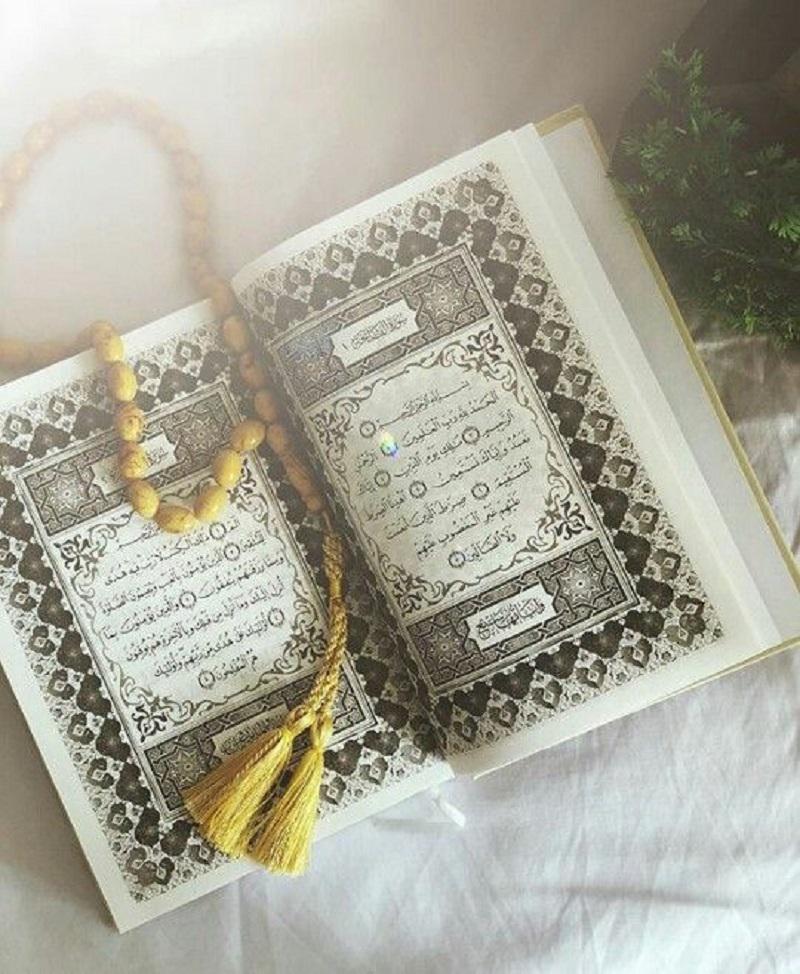 سُورَةُ الفَاتِحَةِ ١
بِسْمِ اللَّهِ الرَّحْمَٰنِ الرَّحِيمِ ١
الْحَمْدُ لِلَّهِ رَبِّ الْعَٰلَمِينَ ٢ الرَّحْمَٰنِ
الرَّحِيمِ ٣ مَٰلِكِ يَوْمِ الدِّينِ ٤ إِيَّاكَ
نَعْبُدُ وَإِيَّاكَ نَسْتَعِينُ ٥ اهْدِنَا الصِّرَٰطَ
الْمُسْتَقِيمَ ٦ صِرَٰطَ الَّذِينَ أَنْعَمْتَ
عَلَيْهِمْ غَيْرِ الْمَغْضُوبِ عَلَيْهِمْ
وَلَا الضَّالِّينَ ٧
الرَّحِيمِ
الم ١ ذَٰلِكَ الْكِتَٰبُ لَا رَيْبَ فِيهِ هُدًى
لِلْمُتَّقِينَ ٢ الَّذِينَ يُؤْمِنُونَ بِالْغَيْبِ وَيُقِيمُونَ الصَّلَوٰةَ
وَمِمَّا رَزَقْنَٰهُمْ يُنْفِقُونَ ٣ وَالَّذِينَ يُؤْمِنُونَ بِمَا
أُنْزِلَ إِلَيْكَ وَمَا أُنْزِلَ مِنْ قَبْلِكَ وَبِالْآخِرَةِ هُمْ يُوقِنُونَ ٤
أُولَٰئِكَ عَلَىٰ هُدًى مِنْ رَبِّهِمْ وَأُولَٰئِكَ
هُمُ الْمُفْلِحُونَ ٥